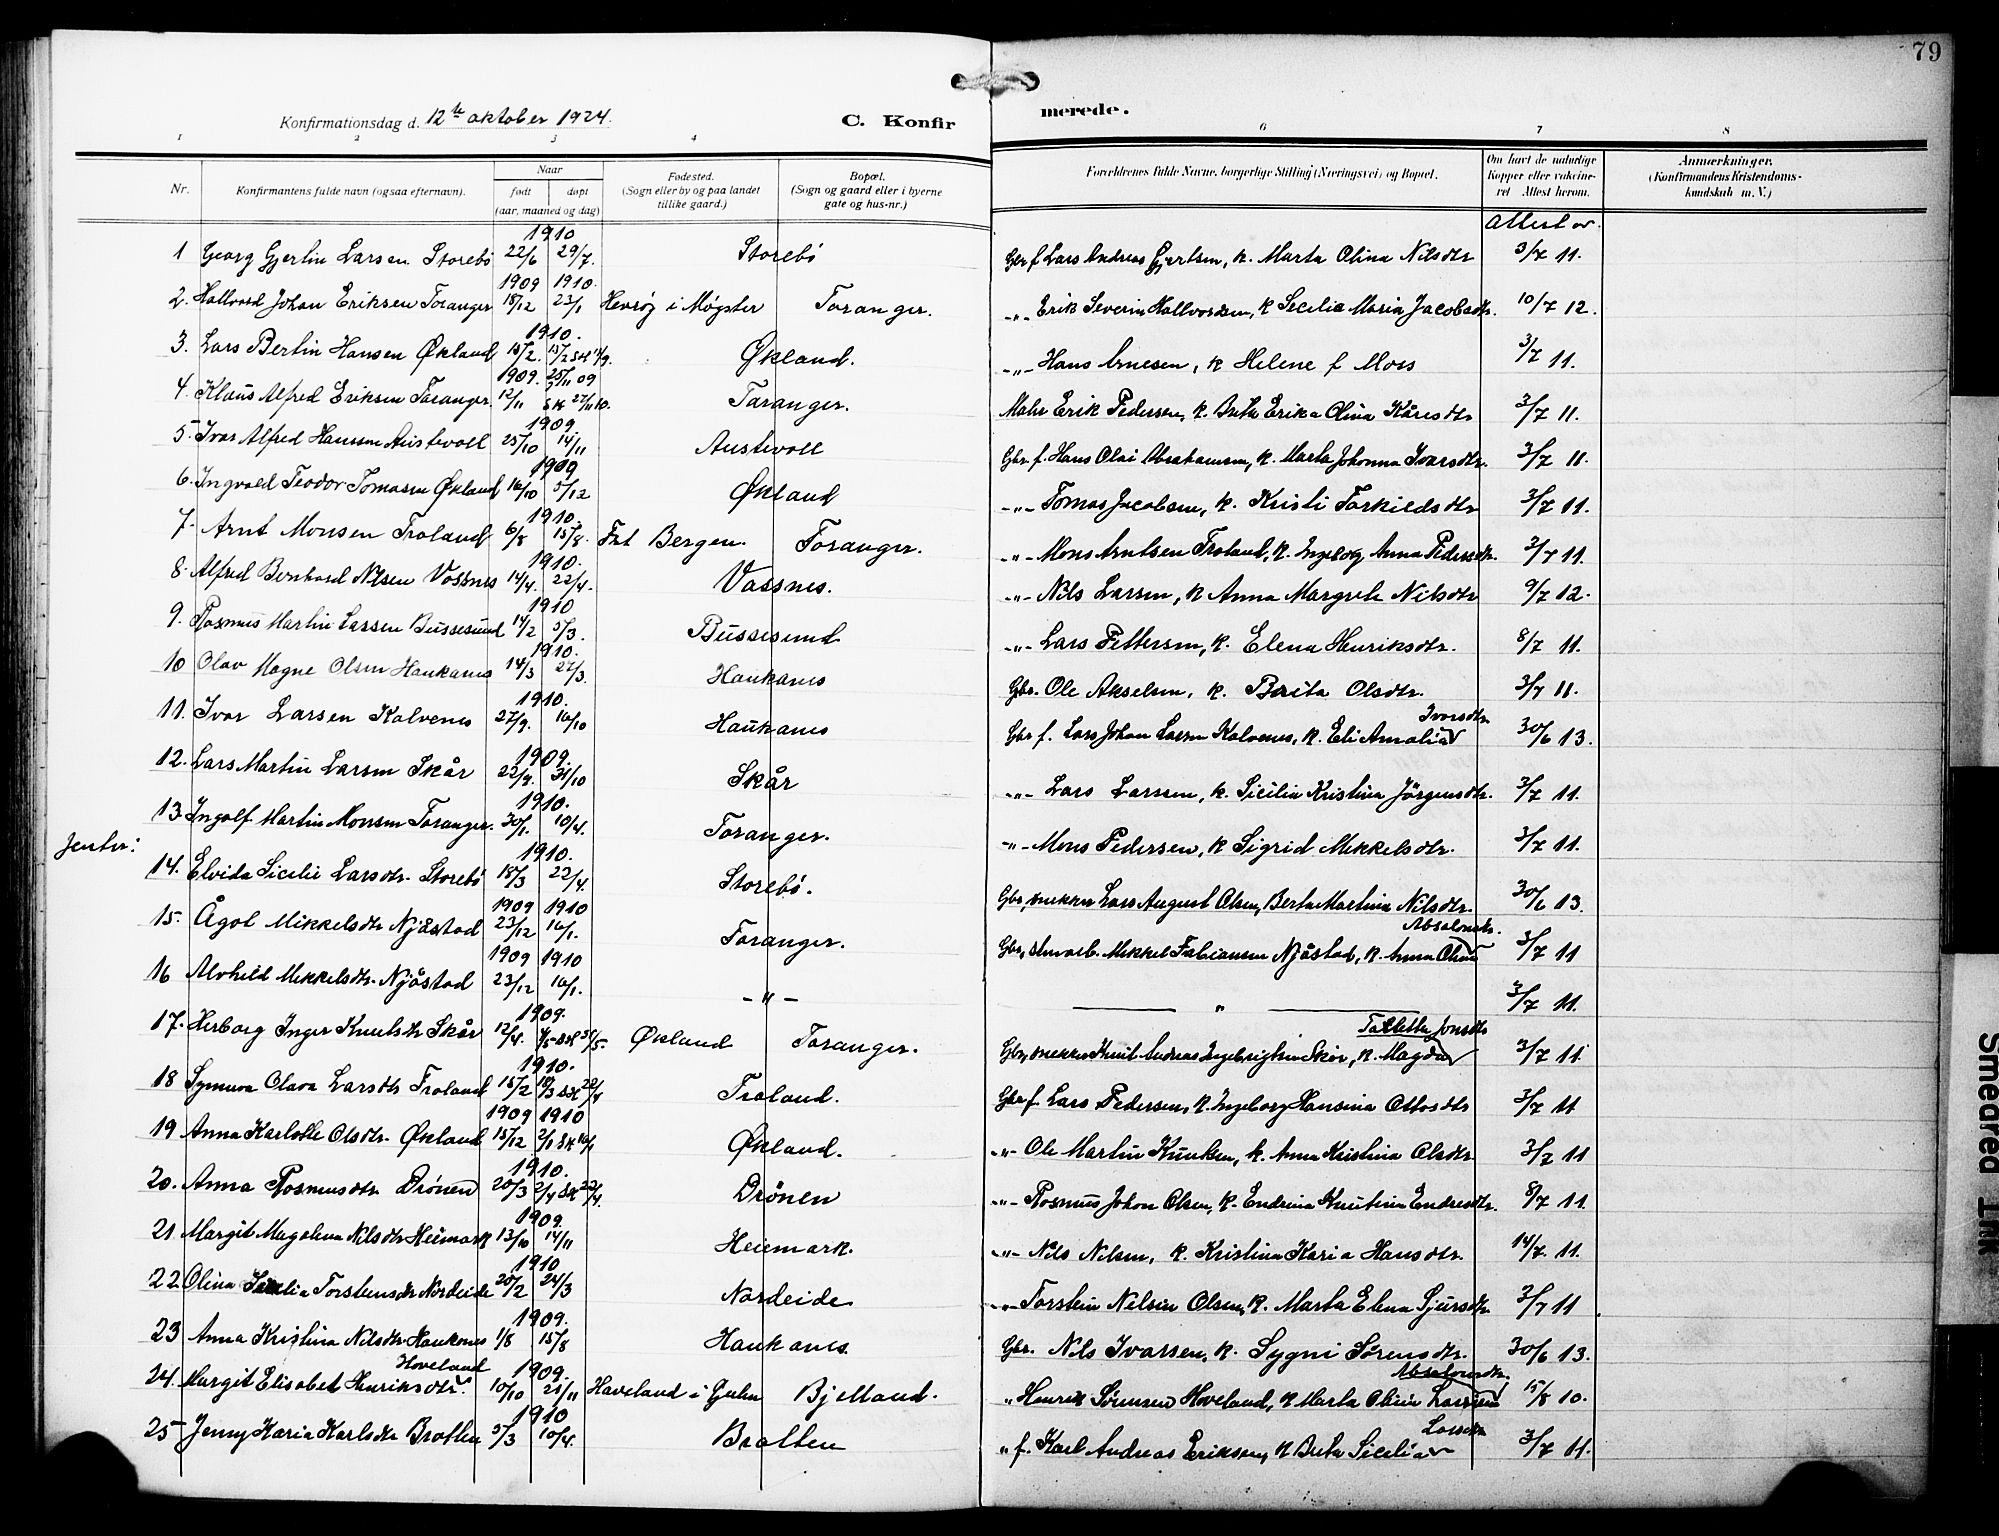 79
Konfirmationsdag d. 12te oktober 1924. C. Konfirmerede.
1 2 3 4 6 7 8
Nr. Konfirmantens fulde navn (ogsaa efternavn). Naar født døpt (aar, maaned og dag) Fødested. (Sogn eller by og paa landet tillike gaard.) Bopæl. (Sogn og gaard eller i byerne gate og hus-nr.) Forældrenes fulde Navne, borgerlige Stilling (Næringsvei) og Bopæl. Om havt de naturlige Kopper eller vakcineret Attest herom. Anmerkninger. (Konfirmandens Kristendomskundskab m. V.)
Attest av
1910
1 Georg Gjertin Larsen Storebö 22/6 29/7. Storebö Gbr f Lars Andreas Gjertsen, k. Marta Olina Nilsdtr 3/7 11.
1909 1910.
2. Hallvard Johan Eriksen Toranger 18/12 23/1 Hevrøg i Møgster Toranger. -"- Erik Severin Hallvordsen, k Secilia Maria Jacobsdtr. 10/7 12.
1910.
3. Lars Bertin Hansen Økland 15/2. Økland. -"- Hans Arnesen, k Helene f Moss 3/7 11.
1909. 25/11 09
4. Klaus Alfred Eriksen Toranger. 12/11 Toranger. Erik Pedersen, k. Brita Erika Olina Kåresdtr 3/7 11.
1909.
5. Ivar Alfred Hansen Austevoll 25/10 14/11 Austevoll Gbr. f. Hans Olai Abrahamsen, k. Marta Johanna Ivarsdtr. 3/7 11.
1909
6. Ingvald Teodor Tomasen Økland 16/10 5/12 Økland -"- Tomas Jacobsen, k. Kristi Torkildsdtr 3/7 11.
1910.
7. Arnt Monsen Troland 6/8 15/8. Bergen. Toranger. -"- Mons Arntsen Troland, k. Ingeborg Anna Pedersdtr. 3/7 11.
1910.
8. Alfred Bernhard Nilsen Vossnes 14/4. 22/4. Vassnes. -"- Nils Larsen, k Anna Margrete Nilsdtr 9/7 12.
1910
9. Rasmus Martin Larsen Bussesund 14/2 5/3. Bussesund -"- Lars Pettersen, k. Elena Henriksdtr. 8/7 11.
1910.
10 Olav Magne Olsen Haukanes 14/3 27/3. Haukanes Gbr. Ole Akselsen, k. Berita Olsdtr. 3/7 11.
1910.
11. Ivar Larsen Kalvenes 27/9. 16/10 Haukanes Gbr f. Lars Johan Larsen Kalvenes, k. Eli Amalia Ivarsdtr 30/6 13.
1909.
12. Lars Martin Larsen Skår 22/9. 31/10 Skår -"- Lars Larssen, k. Sicilia Kristina Jörgensdtr. 3/7 11.
1910.
13. Ingolf Martin Monsen Toranger. 30/1. 10/4. Toranger. -"- Mons Pedersen, k Sigrid Mikkelsdtr. 3/7 11.
Jenter:
1910.
14. Elvida Sicilie Larsdtr. Storebö 18/3 22/4. Storebö. Gbr, snekker Lars August Olsen, Berta Martina Nilsdtr. 30/6 13.
1909 1910
15. Ågot Mikkelsdtr Njåstad 23/12 16/1. Toranger. Gbr, Mikkel Fabiansen Njåstad, k. Anna Olina Absalonsdtr. 3/7 11
1909 1910
16 Alvhild Mikkelsdtr. Njåstad 23/12 16/1. -"- " 3/7 11.
1909.
17. Herborg Inger Knutsdtr Skår 12/4. Økland Toranger. Gbr, snekker Knut Andreas Ingebrigtsen Skår, k. Magda Jonsdtr 3/7 11
1910.
18 Synneva Olava Larsdtr Troland 15/2 Troland. Gbr f Lars Pedersen, k. Ingeborg Hansina Ottosdtr 3/7 11
1909 1910
19 Anna Karlotte Olsdtr. Økland 15/12 Økland. -"- Ole Martin Knutsen, k. Anna Kristina Olsdtr 3/7 11
1910.
20. Anna Rasmusdtr. Drönen 20/3 Drönen -"- Rasmus Johan Olsen, k. Endrina Knutina Endresdtr. 8/7 11.
1909.
21 Margit Magdlena Nilsdtr Heimark 13/10 14/11 Heiemark. -"- Nils Nilsen, k. Kristina Karia Hansdtr. 14/7 11.
1910
22. Olina Torsteinsdtr Nordeide 20/2 24/3 Nordeide -"- Torstein Nelsin Olsen, k. Marta Elena Sjursdtr 3/7 11
1909.
23 Anna Kristina Nilsdtr. Haukanes 1/8 15/8 Haukanes. Gbr. Nils Ivarsen, k. Sygni Sörensdtr. 30/6 13.
1909.
24. Margit Elisabet Henriksdtr. Hoveland 10/10 21/11 Haveland i Bjelland. " Henrik Sörensen Hoveland, k Marta Olina Absalonsdtr. 15/8 10.
1910
25 Jenny Karia Karlsdtr Bratten 5/3 10/4. Bratten " f. Karl Andreas Eriksen, k Brita Sicilia Larsdtr 3/7 11.
Smeared Ink